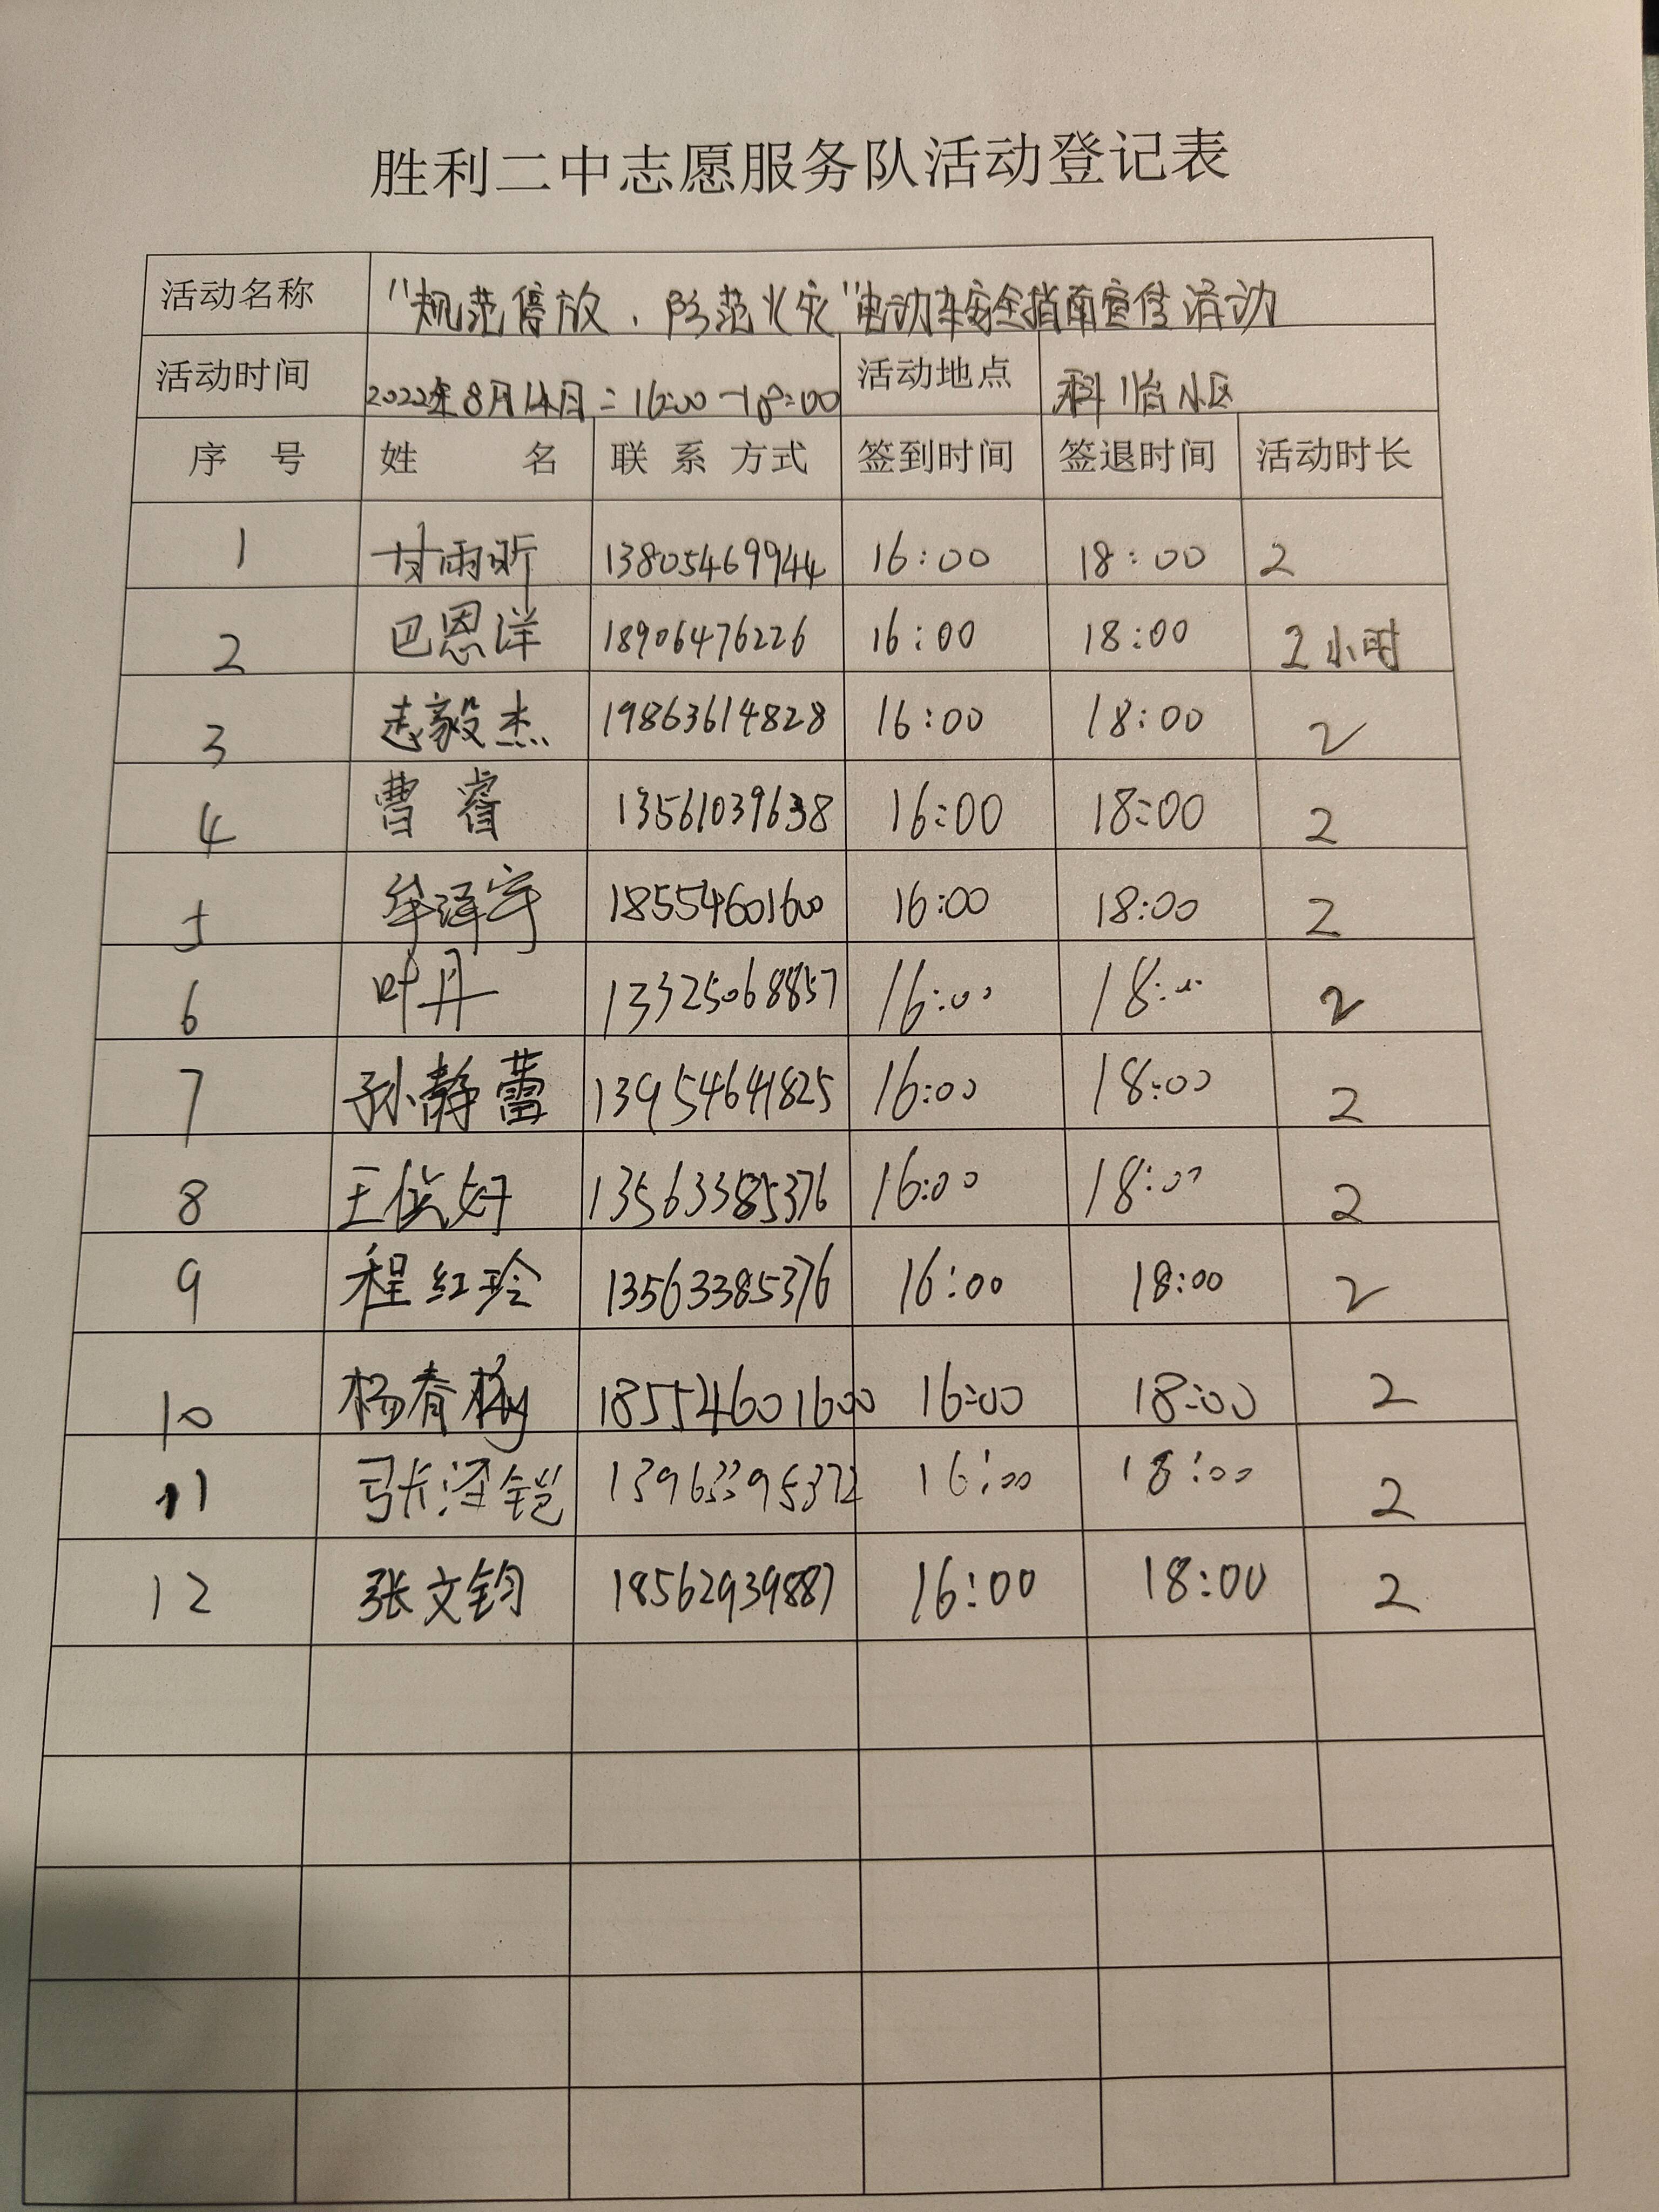 胜利二中志愿服务队活动登记表
活动名称 "规范停放、防范火灾"电动车安全指南宣传活动
活动时间 2022年8月14日 = 16:00-18:00 活动地点 科怡小区
序 号 姓 名 联 系 方式 签到时间 签退时间 活动时长
1 甘雨昕 13805469944 16:00 18:00 2
2 巴恩洋 18906476226 16:00 18:00 2小时
3 毅杰 19863614828 16:00 18:00 2
4 曹睿 13561039638 16:00 18:00 2
5 牟泽宇 18554601600 16:00 18:00 2
6 叶丹 13325068857 16:00 18:00 2
7 孙静蕾 13954641825 16:00 18:00 2
8 王 13563385376 16:00 18:00 2
9 程红玲 13563385376 16:00 18:00 2
10 杨春梅 18554601600 16:00 18:00 2
11 张泽铠 13963395372 16:00 18:00 2
12 张文钧 18562939887 16:00 18:00 2